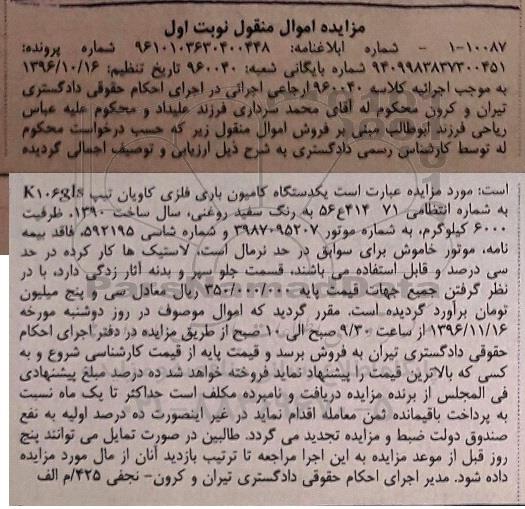 مزایده اموال منقول نوبت اول
۱-۱۰۰۸۷ - شماره ابلاغنامه: ۹۶۱۰۱۰۳۶۳۰۴۰۰۴۴۸ شماره پرونده:
۹۴۰۹۹۸۳۸۳۷۳۰۰۴۵۱ شماره بایگانی شعبه: ۹۶۰۰۴۰ تاریخ تنظیم: ۱۳۹۶/۱۰/۱۶
به موجب اجرائیه کلاسه ۹۶۰۰۴۰ ارجاعی اجرائی در اجرای احکام حقوقی دادگستری
تیران و کرون محکوم له آقای محمد سرداری فرزند علیداد و محکوم علیه عباس
ریاحی فرزند ابوطالب مبنی بر فروش اموال منقول زیر که حسب درخواست محکوم
له توسط کارشناس رسمی دادگستری به شرح ذیل ارزیابی و توصیف اجمالی گردیده
است: مورد مزایده عبارت است یکدستگاه کامیون باری فلزی کاویان تیپ K۱۰۶gls
به شماره انتظامی ۷۱ ۴۱۴ع۵۶ به رنگ سفید روغنی، سال ساخت ۱۳۹۰، ظرفیت
۶۰۰۰ کیلوگرم، به شماره موتور ۳۹۸۷۰۹۵۲۰۷ و شماره شاسی ۵۹۲۱۹۵، فاقد بیمه
نامه، موتور خاموش برای سوابق در حد نرمال است، لاستیک ها کار کرده در حد
سی درصد و قابل استفاده می باشند، قسمت جلو سپر و بدنه آثار زدگی دارد، با در
نظر گرفتن جمیع جهات قیمت پایه ۳۵۰/۰۰۰/۰۰۰ ریال معادل سی و پنج میلیون
تومان برآورد گردیده است. مقرر گردید که اموال موصوف در روز دوشنبه مورخه
۱۳۹۶/۱۱/۱۶ از ساعت ۹/۳۰ صبح الی ۱۰ صبح از طریق مزایده در دفتر اجرای احکام
حقوقی دادگستری تیران به فروش برسد و قیمت پایه از قیمت کارشناسی شروع و به
کسی که بالاترین قیمت را پیشنهاد نماید فروخته خواهد شد ده درصد مبلغ پیشنهادی
فی المجلس از برنده مزایده دریافت و نامبرده مکلف است حداکثر تا یک ماه نسبت
به پرداخت باقیمانده ثمن معامله اقدام نماید در غیر اینصورت ده درصد اولیه به نفع
صندوق دولت ضبط و مزایده تجدید می گردد. طالبین در صورت تمایل می توانند پنج
روز قبل از موعد مزایده به این اجرا مراجعه تا ترتیب بازدید آنان از مال مورد مزایده
داده شود. مدیر اجرای احکام حقوقی دادگستری تیران و کرون- نجفی ۴۲۵/م الف